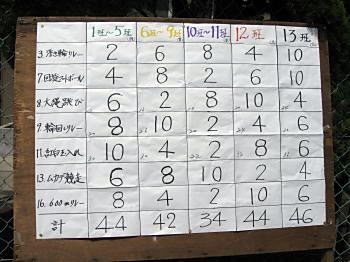 1班～5班 6班～9班 10班～11班 12班 13班
3. 浮き輪リレー 2 6 8 4 10
7. 4 8 2 6 10
8. 大縄跳び 6 2 8 10 4
9. 輪回しリレー 8 10 2 4 6
11. 紅白玉入れ 10 4 2 8 6
13. ムカデ競走 6 8 10 2 4
16. 600mリレー 8 4 2 10 6
計 44 42 34 44 46